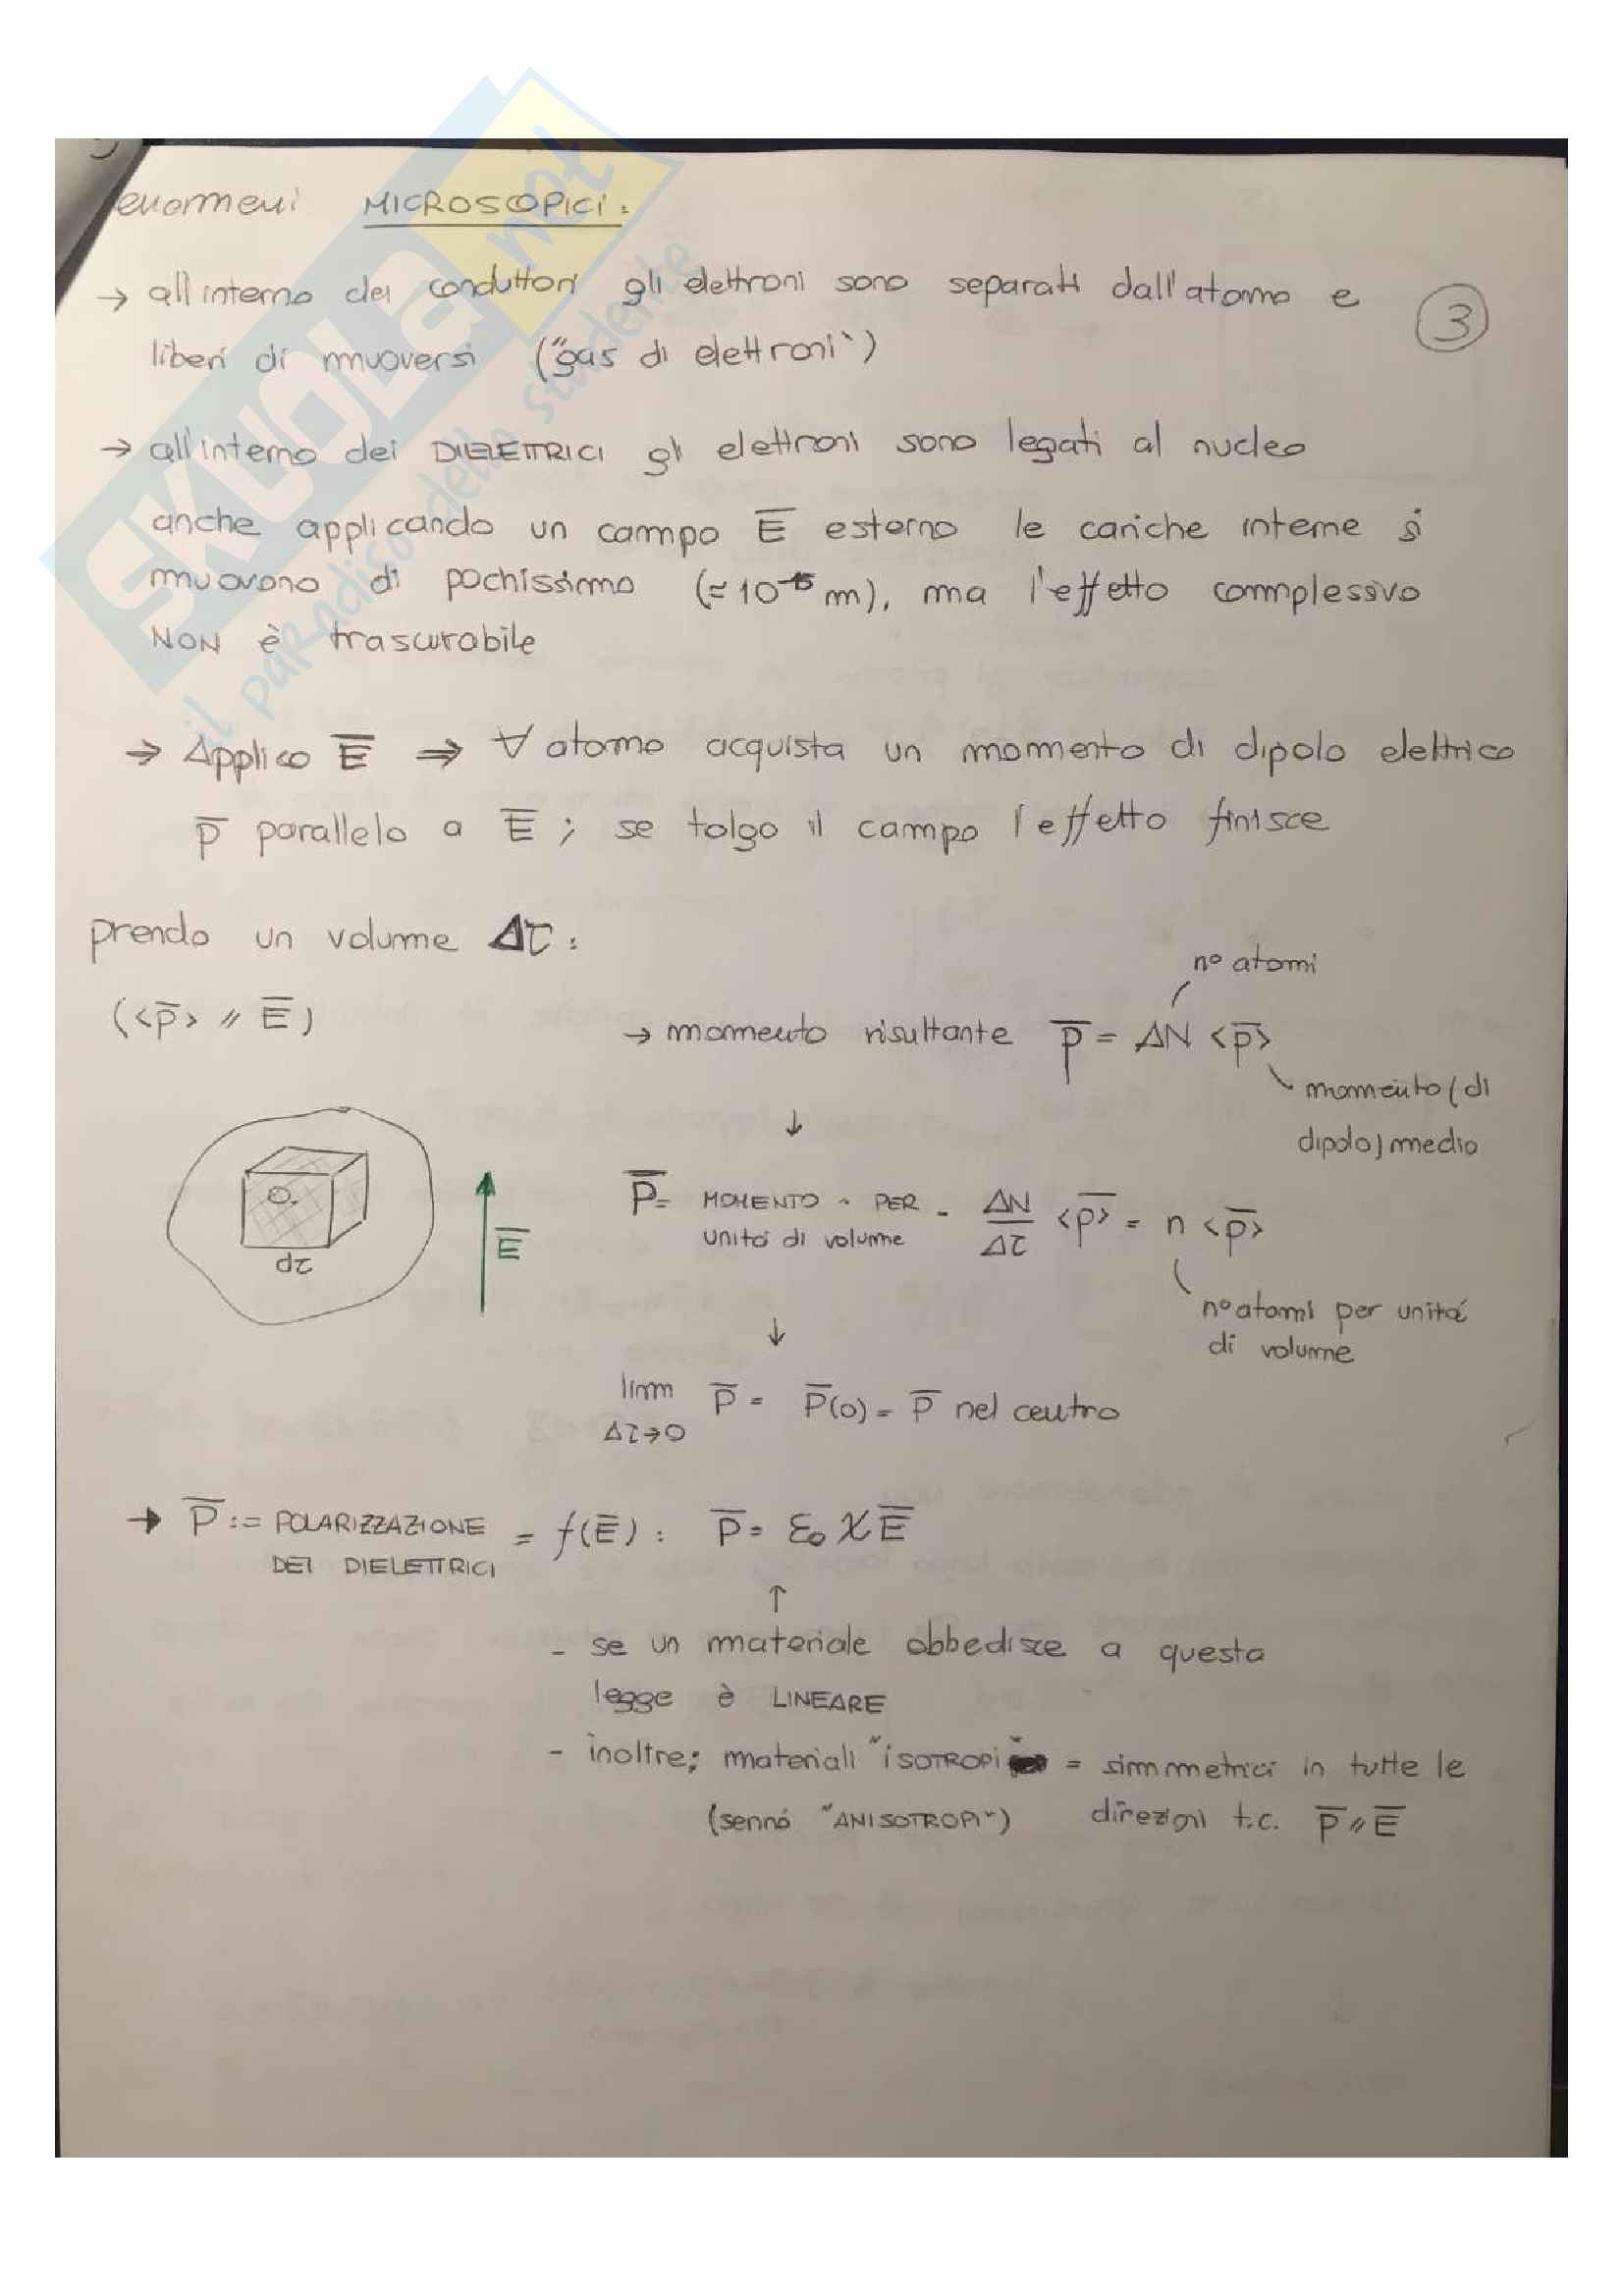 enomeni MICROSCOPICI:
→ all'interno dei conduttori gli elettroni sono separati dall'atomo e
3
liberi di muoversi ("gas di elettroni")
→ all'interno dei DIELETTRICI gli elettroni sono legati al nucleo
anche applicando un campo E̅ esterno le cariche interne si
muovono di pochissimo (≈10⁻¹⁵ m), ma l'effetto complessivo
NON è trascurabile
→ Applico E̅ ⇒ ∀ atomo acquista un momento di dipolo elettrico
p̅ parallelo a E̅ ; se tolgo il campo l'effetto finisce
prendo un volume Δτ:
n° atomi
(<p̅> // E̅)
→ momento risultante p̅ = ΔN <p̅>
momento (di
dipolo) medio
P̅ = MOMENTO - PER = ΔN/Δτ <p̅> = n <p̅>
unità di volume
E̅
dτ
n° atomi per unità
di volume
lim P̅ = P̅(0) = P̅ nel centro
Δτ→0
→ P̅ := POLARIZZAZIONE = f(E̅) : P̅ = ε₀ χ E̅
DEI DIELETTRICI
↑
- se un materiale obbedisce a questa
legge è LINEARE
- inoltre; materiali "ISOTROPI" = simmetrici in tutte le
(sennó "ANISOTROPI") direzioni t.c. P̅ // E̅
SKUOLA.net
il paradiso dello studente